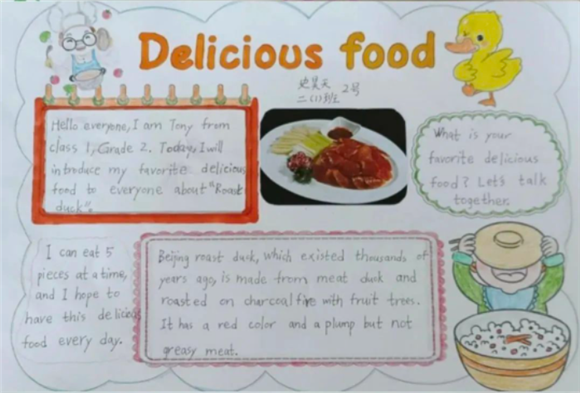 Delicious food
史昊天 2号
二(1)班
Hello everyone, I am Tony from
class 1, Grade 2. Today, I will
introduce my favorite delicious
food to everyone about "Roast
duck".
What is your
favorite delicious
food? Let's talk
together.
I can eat 5
pieces at a time,
and I hope to
have this delicious
food every day.
Beijing roast duck, which existed thousands of
years ago, is made from meat duck and
roasted on charcoal fire with fruit trees.
It has a red color and a plump but not
greasy meat.